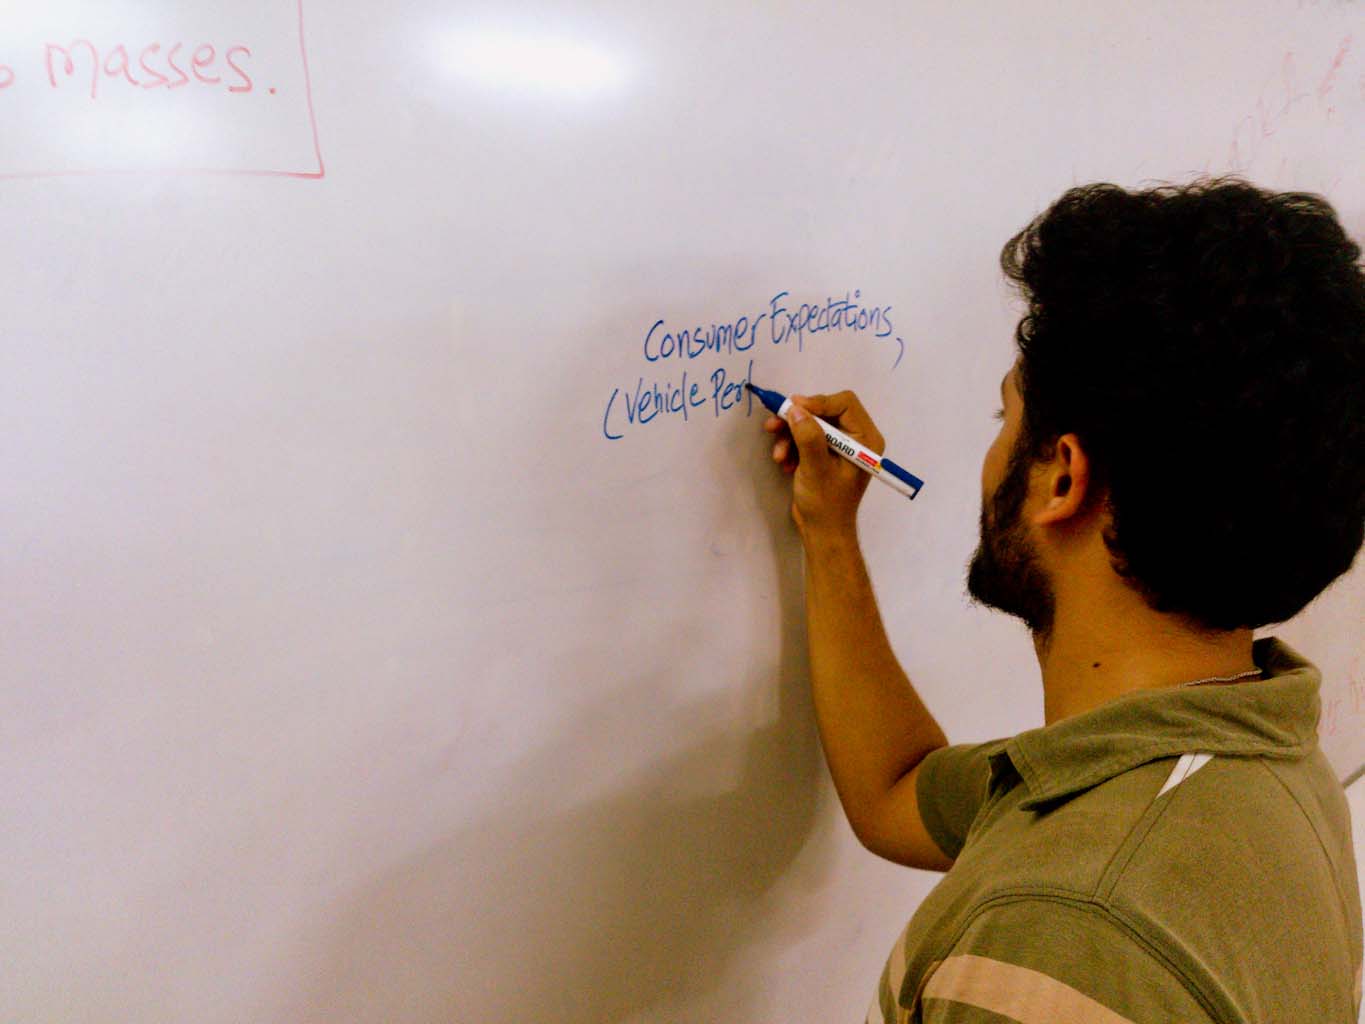 masses.
Consumer Expectations,
(Vehicle Perf
BOARD